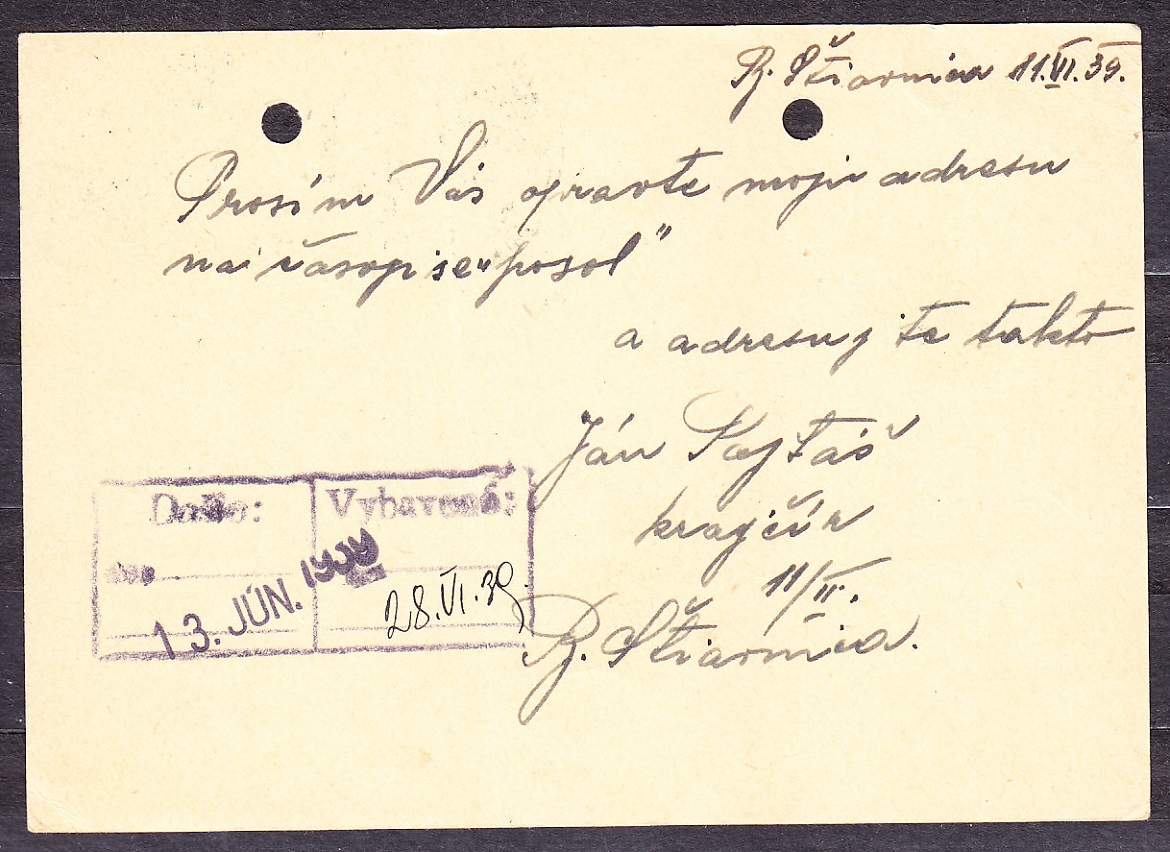 B. Štiavnica 11.VI.39.
Prosím Vás opravte moju adresu
na časopise „posol"
a adresujte takto
Ján
krajčír
11/II.
B. Štiavnica.
Došlo: Vybavené:
13. JÚN. 1939
28.VI.39